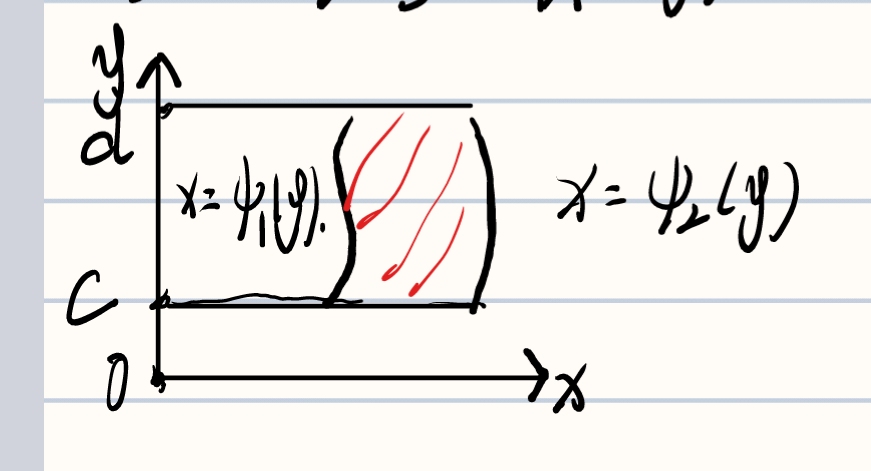 y
d
x=ψ₁(y).
x=ψ₂(y)
c
0
x